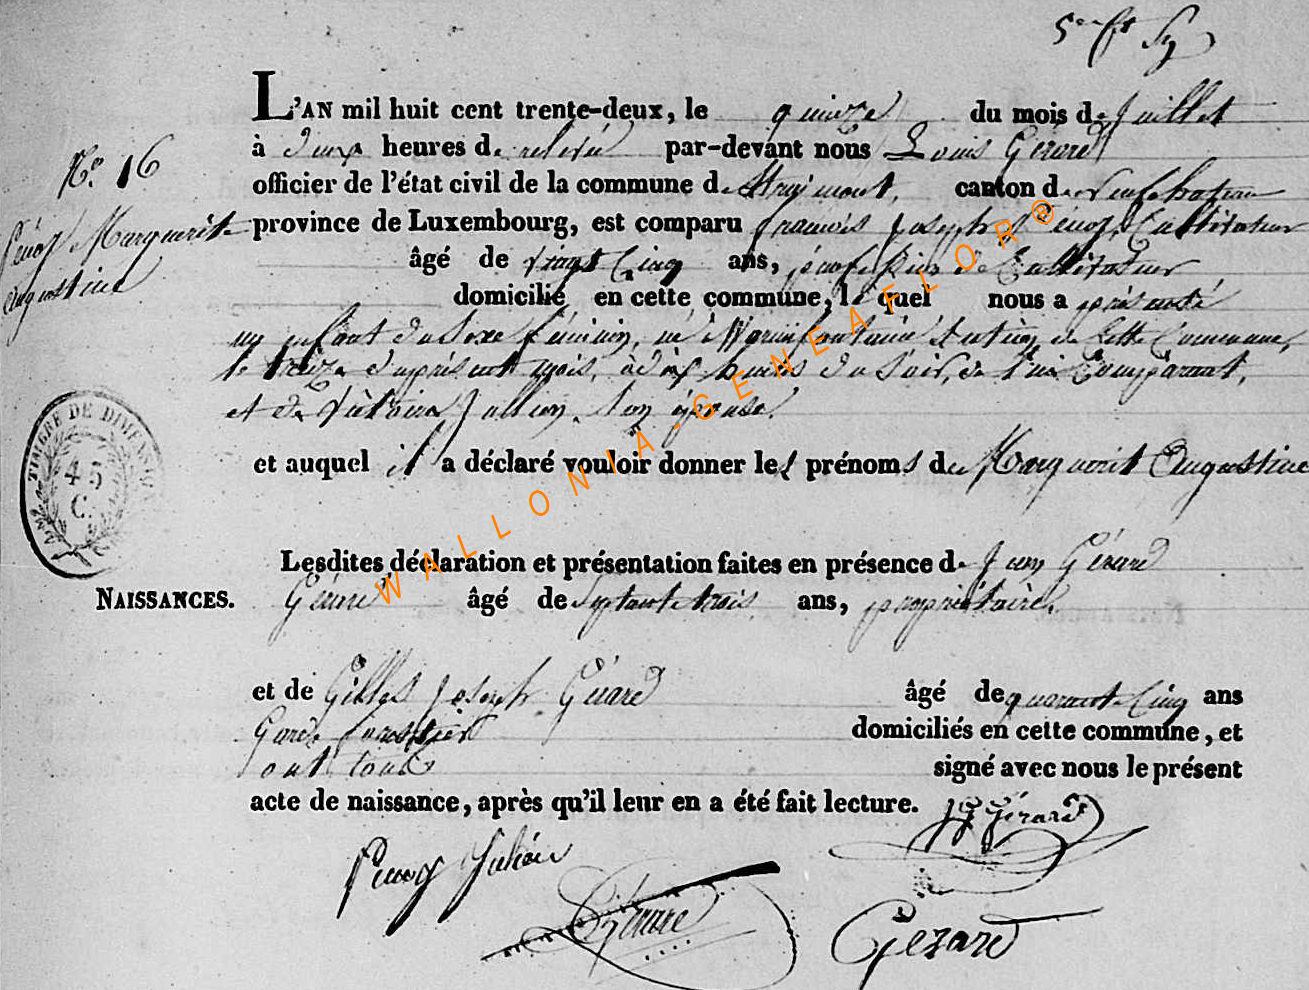 L'AN mil huit cent trente-deux, le quinze du mois de Juillet
à deux heures de relevé par-devant nous Louis Gérard
N.° 16
officier de l'état civil de la commune de Straimont, canton de neufchateau
province de Luxembourg, est comparu francois Joseph Pinoy, Cultivateur
Pinoy Marguerite
augustine
âgé de vingt Cinq ans, proffession de Cultivateur
domicilié en cette commune, le quel nous a présenté
un enfant du sexe féminin, né à Warmifontaine Section de Cette Commune,
le treize du présent mois, à dix heures du Soir, de lui Comparant,
et de Victoire Jullien, Son épouse.
et auquel il a déclaré vouloir donner les prénoms de Marguerit Augustine
TIMBRE DE DIMENSION
45
C.
Lesdites déclaration et présentation faites en présence de Jean Gérard
NAISSANCES. Gérard âgé de Septante trois ans, propriétaire,
et de Gilles Joseph Gérard âgé de quarante Cinq ans
Garde forestier domiciliés en cette commune, et
ont tous signé avec nous le présent
acte de naissance, après qu'il leur en a été fait lecture.
Gérard
Pinoy
Gérard
Gerard
WALLONIA.GENEAFLOR®